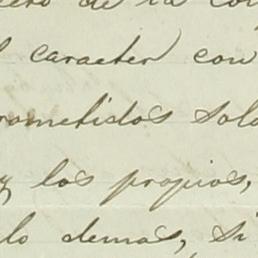 de la con
l caracter con
rometidos sola
y los propios,
lo demas, si